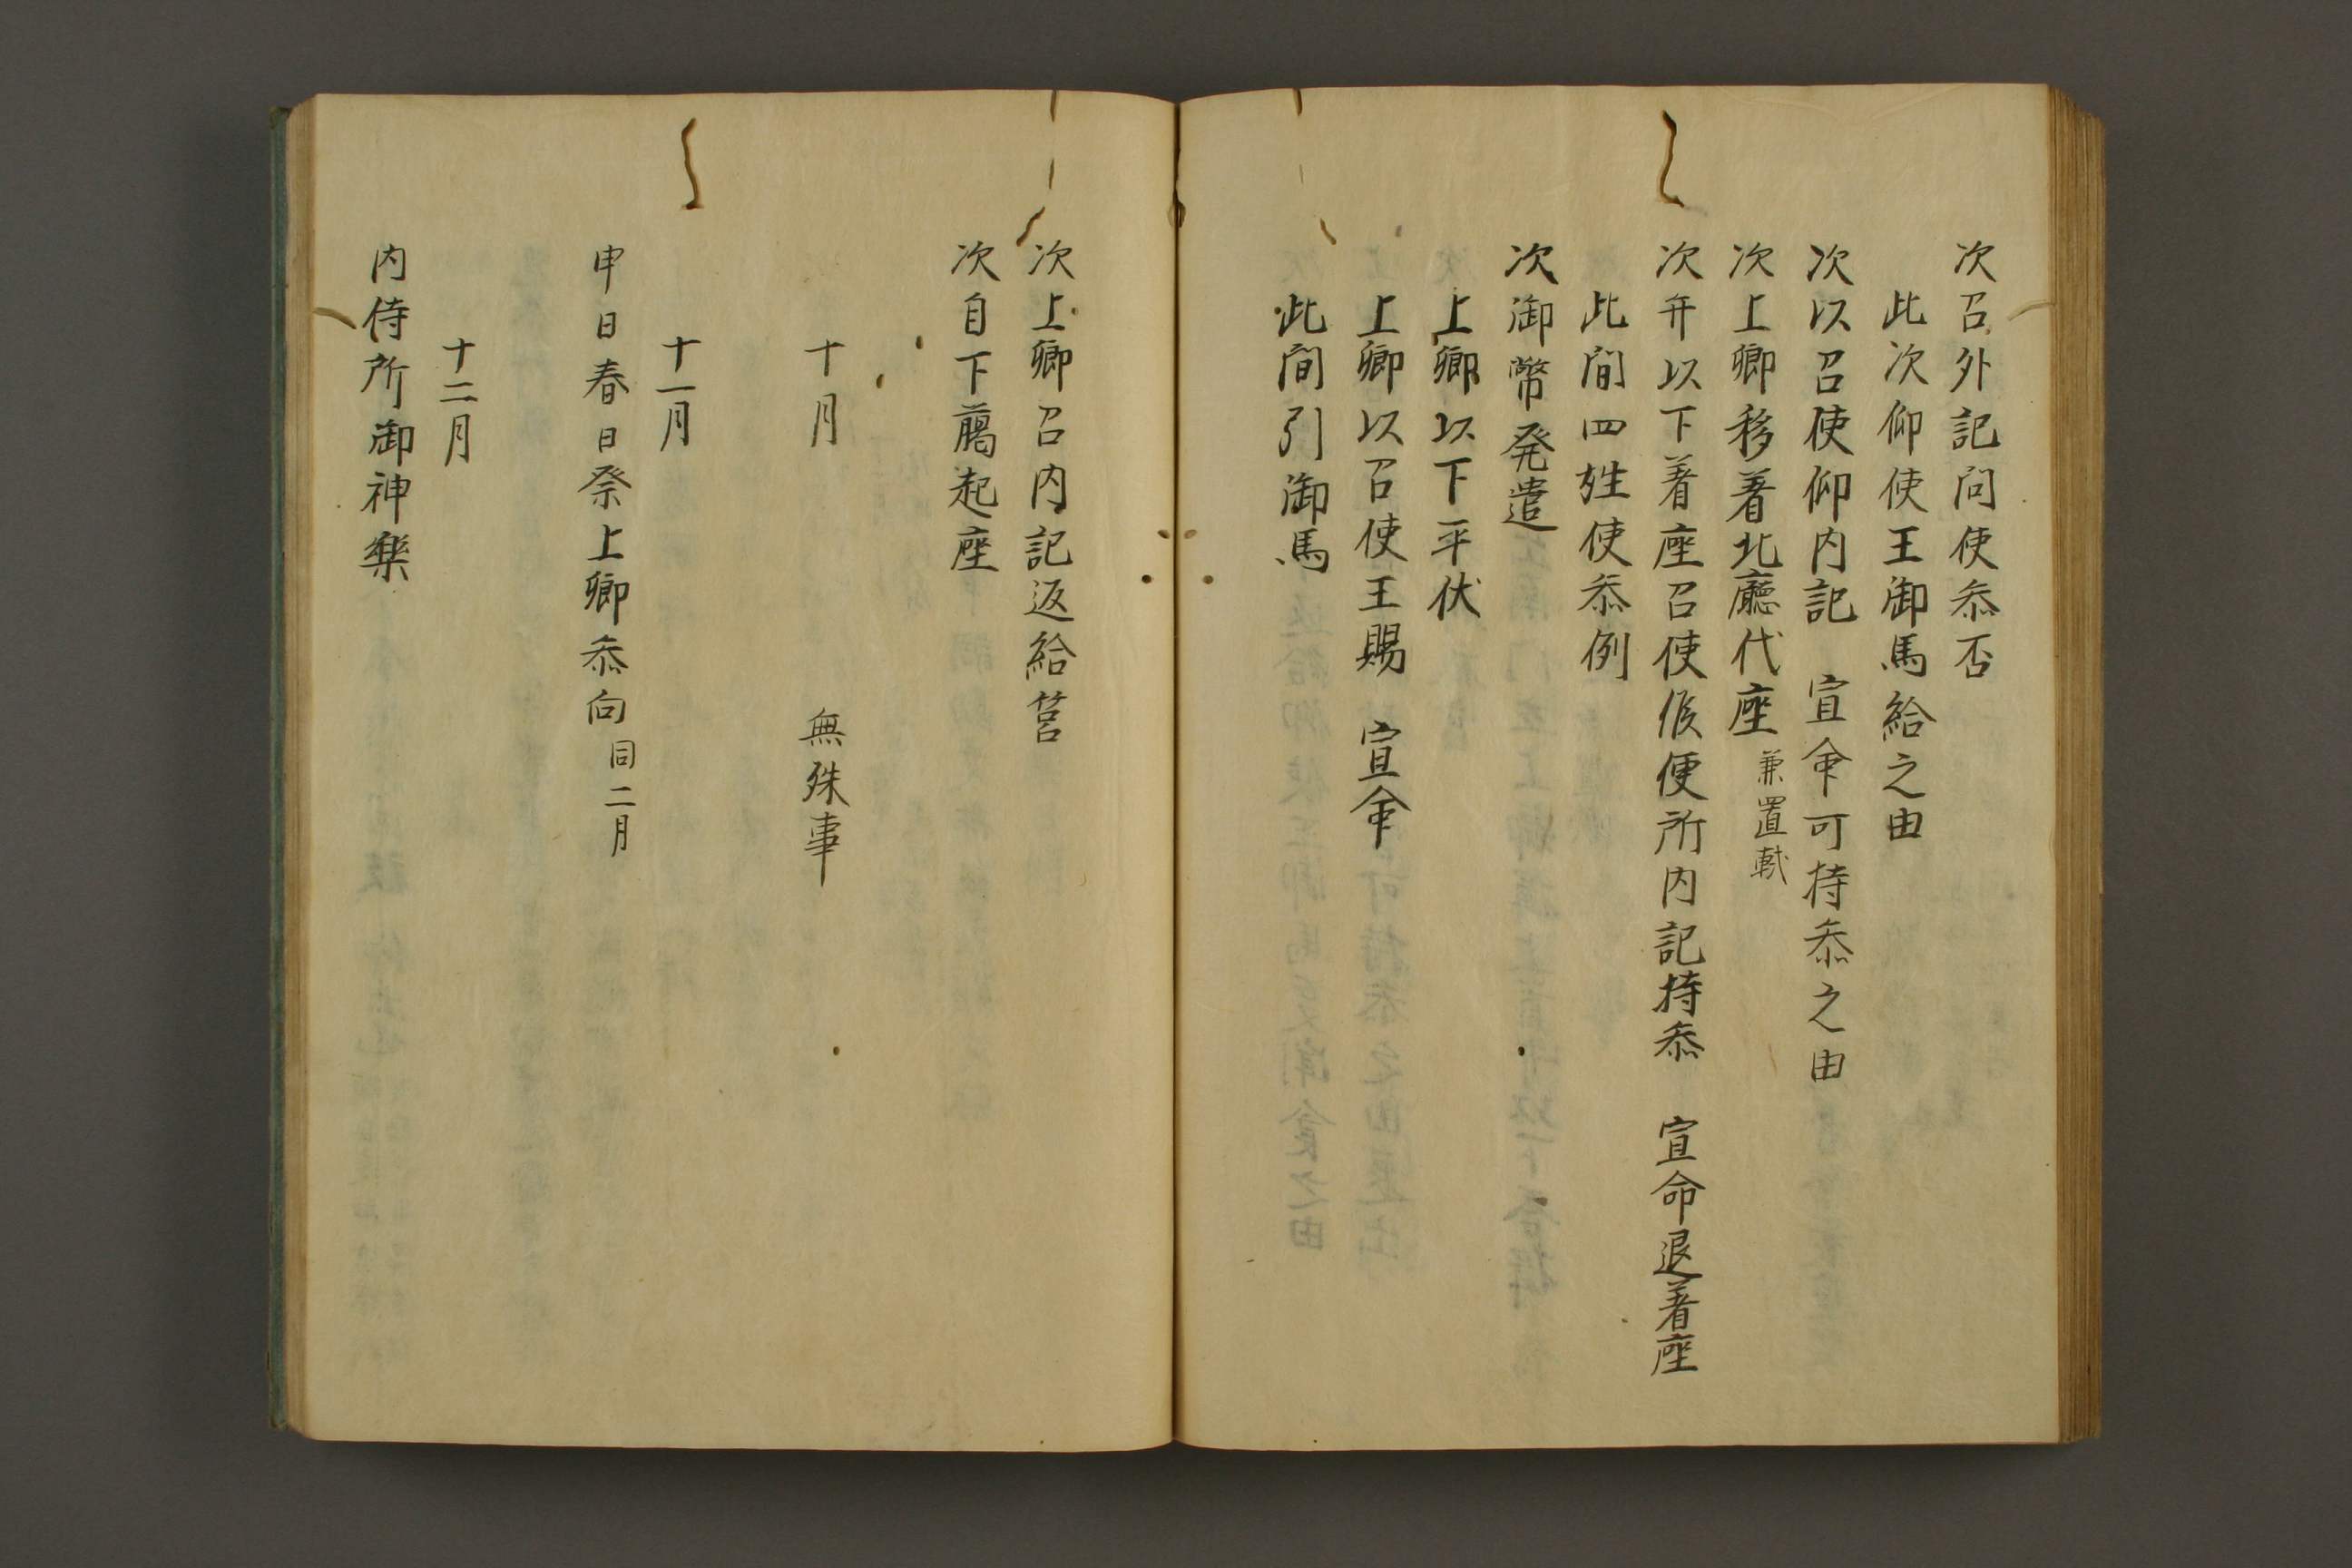 次召外記問使叅否
此次仰使王御馬給之由
次以召使仰内記　宣命可持叅之由
次上卿移着北廳代座兼置軾
次弁以下着座召使候便所内記持叅　宣命退着座
此間四姓使叅例
次御幣発遣
上卿以下平伏
上卿以召使王賜　宣命
此間引御馬
次上卿召内記返給筥
次自下﨟起座
十月　無殊事
十一月
申日春日祭上卿叅向同二月
十二月
内侍所御神楽